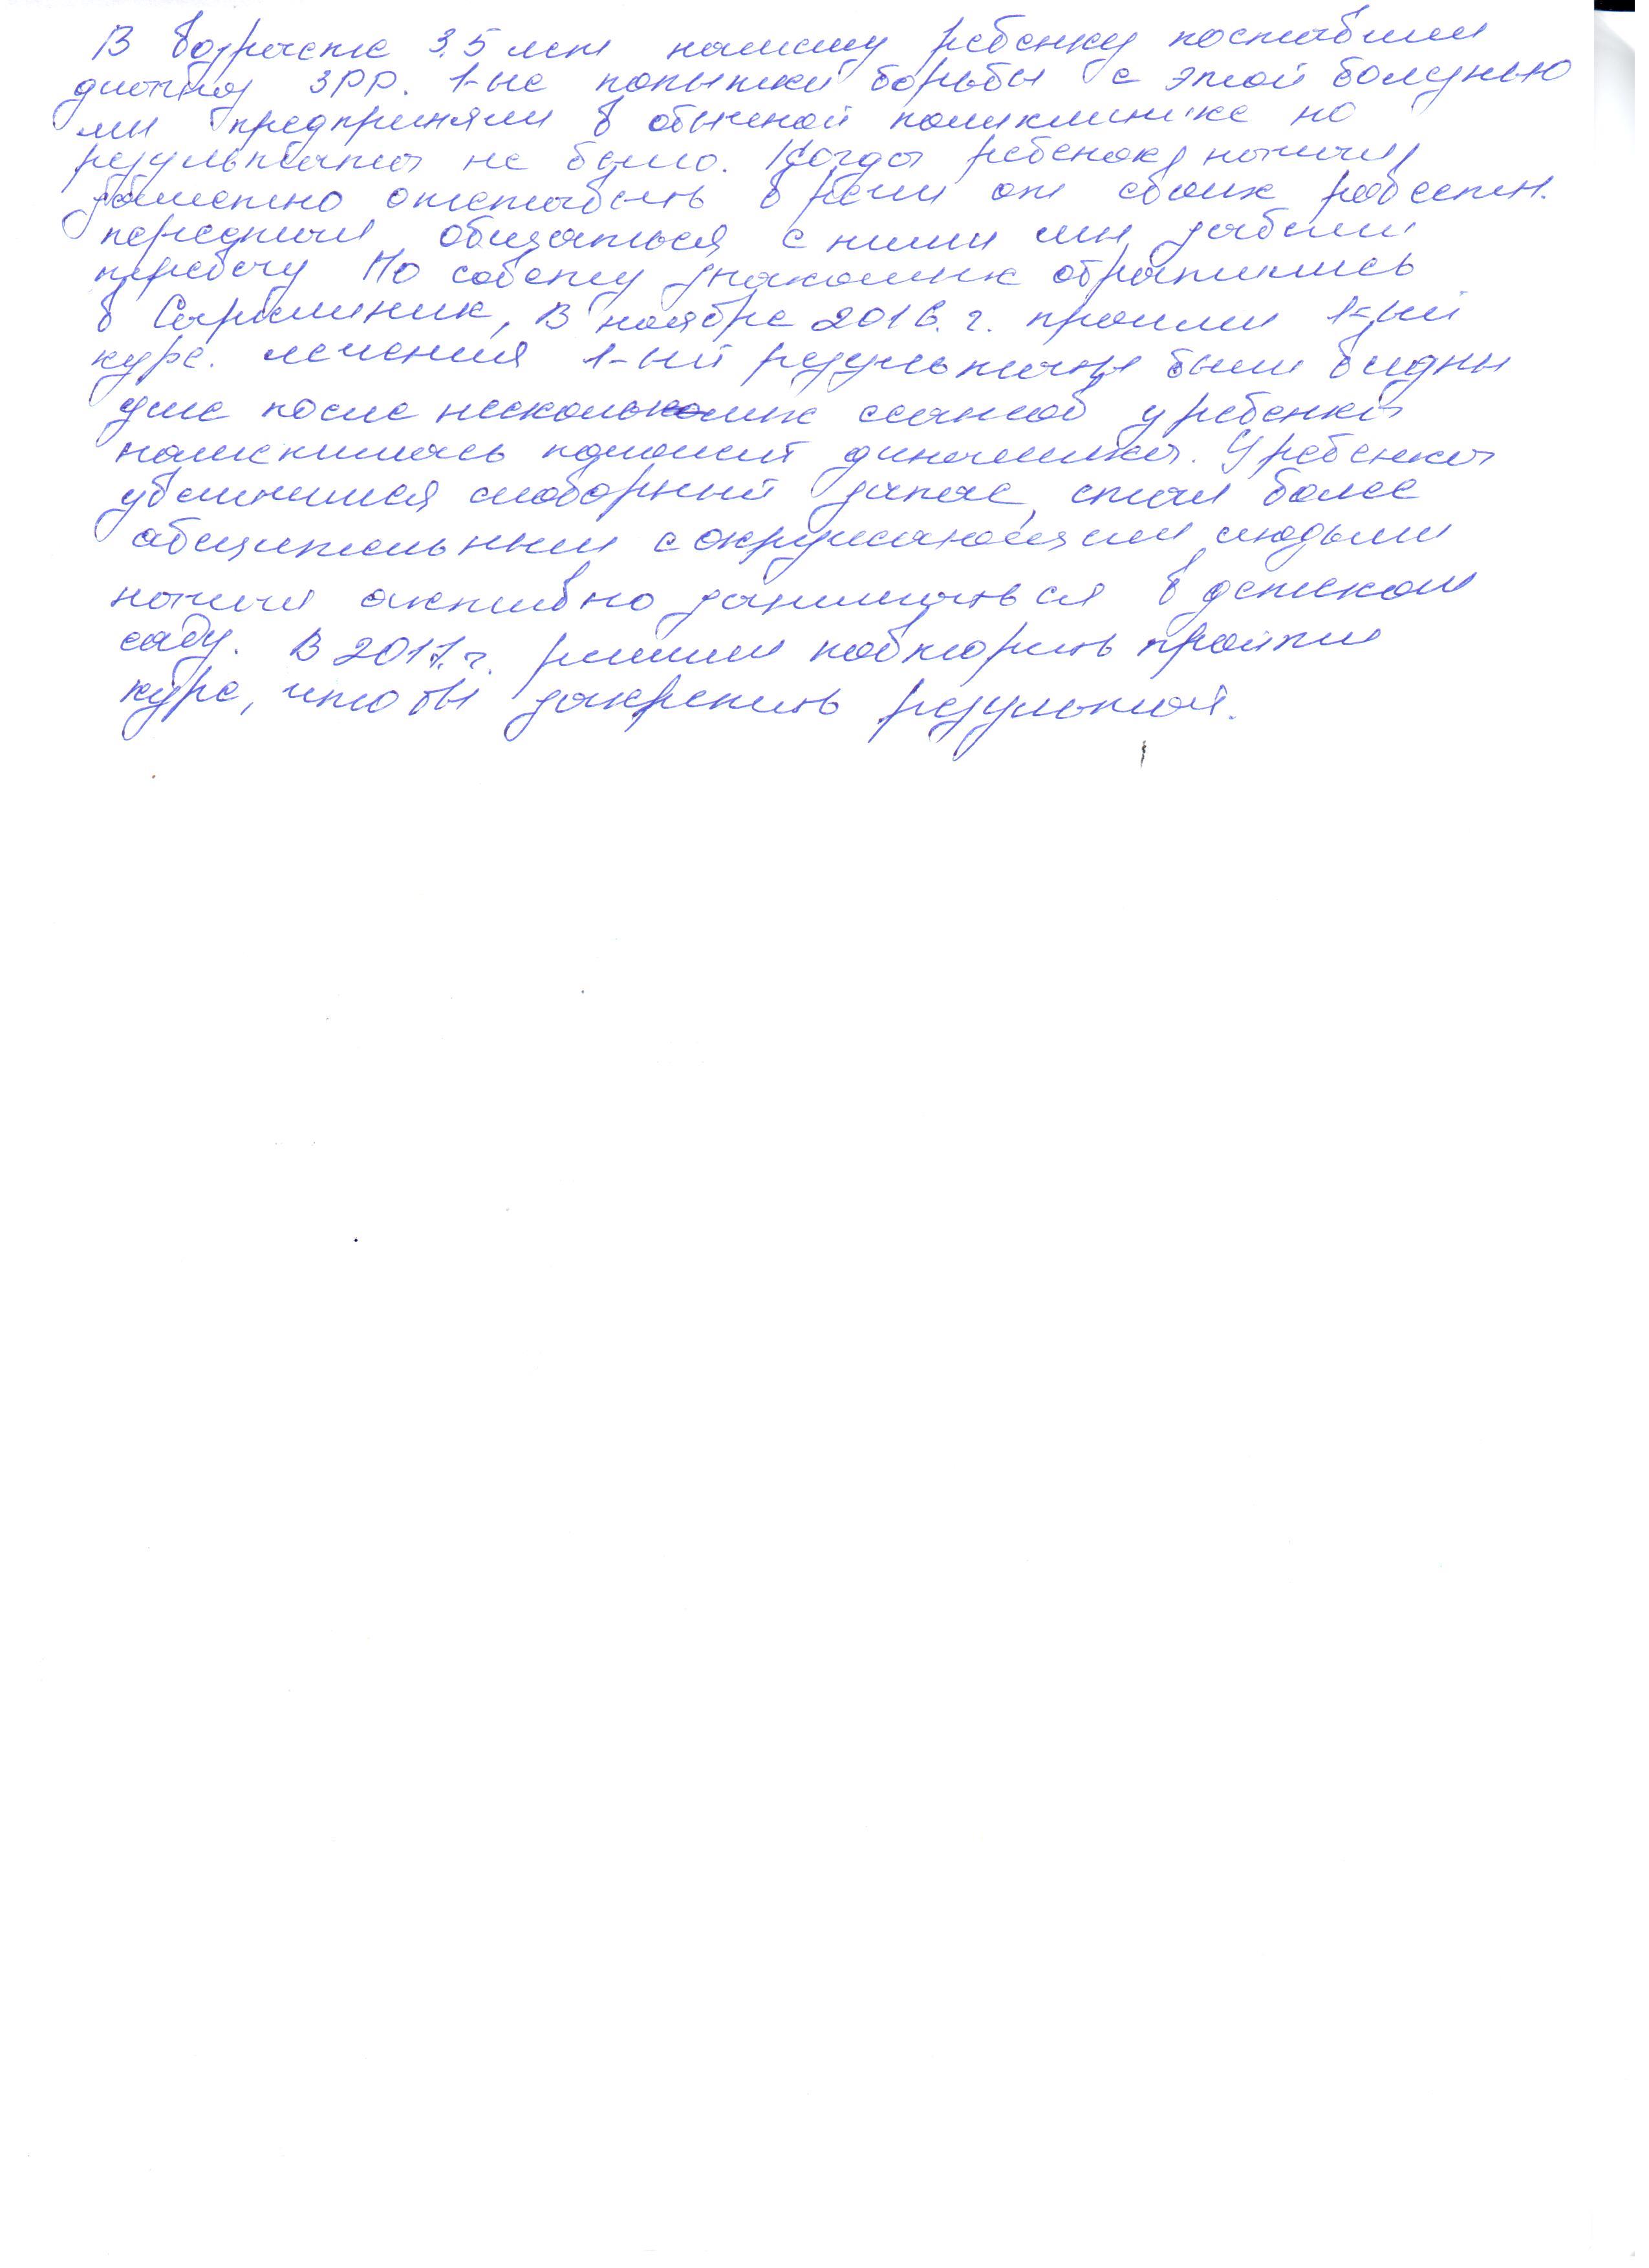 В возрасте 3,5 лет нашему ребенку поставили
диагноз ЗРР. 1-ые попытки борьбы с этой болезнью
мы предприняли в обычной поликлинике но
результата не было. Когда ребенок начал
заметно отставать в речи от своих ровестн.
перестал общаться с ними мы забили
тревогу По совету знакомых обратились
в Сарклиник, В ноябре 2016. г. прошли 1-ый
курс. лечения 1-ый результаты были видны
уже после нескольких сеансов у ребенка
наметилась положит динамика. У ребенка
увеличился словорный запас, стал более
общительным с окружающими людьми
начал активно заниматься в детском
саду. В 2017.г. решили повторить пройти
курс, что бы закрепить результат.